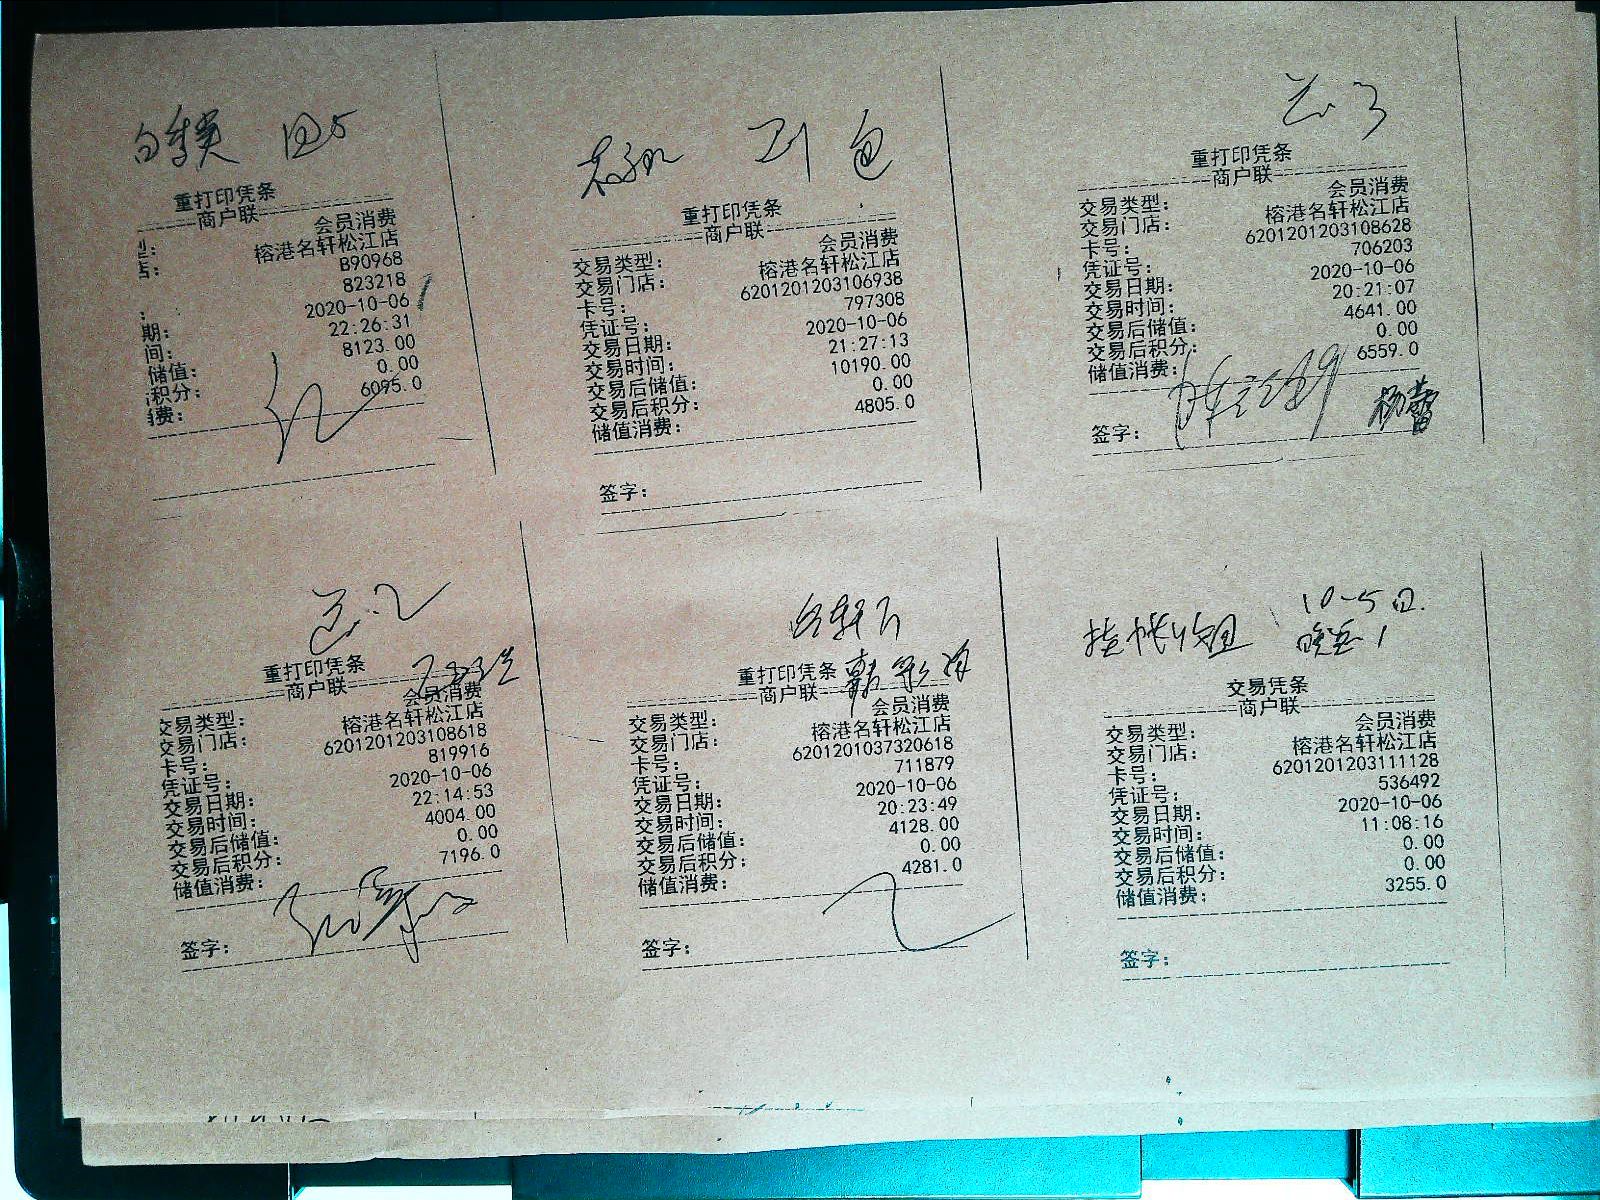 重打印凭条
商户联
型： 会员消费
店： 榕港名轩松江店
B90968
： 823218
期： 2020-10-06
间： 22:26:31
储值： 8123.00
积分： 0.00
消费： 6095.0
包
重打印凭条
商户联
交易类型： 会员消费
交易门店： 榕港名轩松江店
卡号： 6201201203106938
凭证号： 797308
交易日期： 2020-10-06
交易时间： 21:27:13
交易后储值： 10190.00
交易后积分： 0.00
储值消费： 4805.0
签字：
重打印凭条
商户联
交易类型： 会员消费
交易门店： 榕港名轩松江店
卡号： 6201201203108628
凭证号： 706203
交易日期： 2020-10-06
交易时间： 20:21:07
交易后储值： 4641.00
交易后积分： 0.00
储值消费： 6559.0
杨蕾
签字：
重打印凭条
商户联
交易类型： 会员消费
交易门店： 榕港名轩松江店
卡号： 6201201203108618
凭证号： 819916
交易日期： 2020-10-06
交易时间： 22:14:53
交易后储值： 4004.00
交易后积分： 0.00
储值消费： 7196.0
签字：
重打印凭条
商户联
交易类型： 会员消费
交易门店： 榕港名轩松江店
卡号： 6201201037320618
凭证号： 711879
交易日期： 2020-10-06
交易时间： 20:23:49
交易后储值： 4128.00
交易后积分： 0.00
储值消费： 4281.0
签字：
10-5日.
挂帐收回
交易凭条
商户联
交易类型： 会员消费
交易门店： 榕港名轩松江店
卡号： 6201201203111128
凭证号： 536492
交易日期： 2020-10-06
交易时间： 11:08:16
交易后储值： 0.00
交易后积分： 0.00
储值消费： 3255.0
签字：